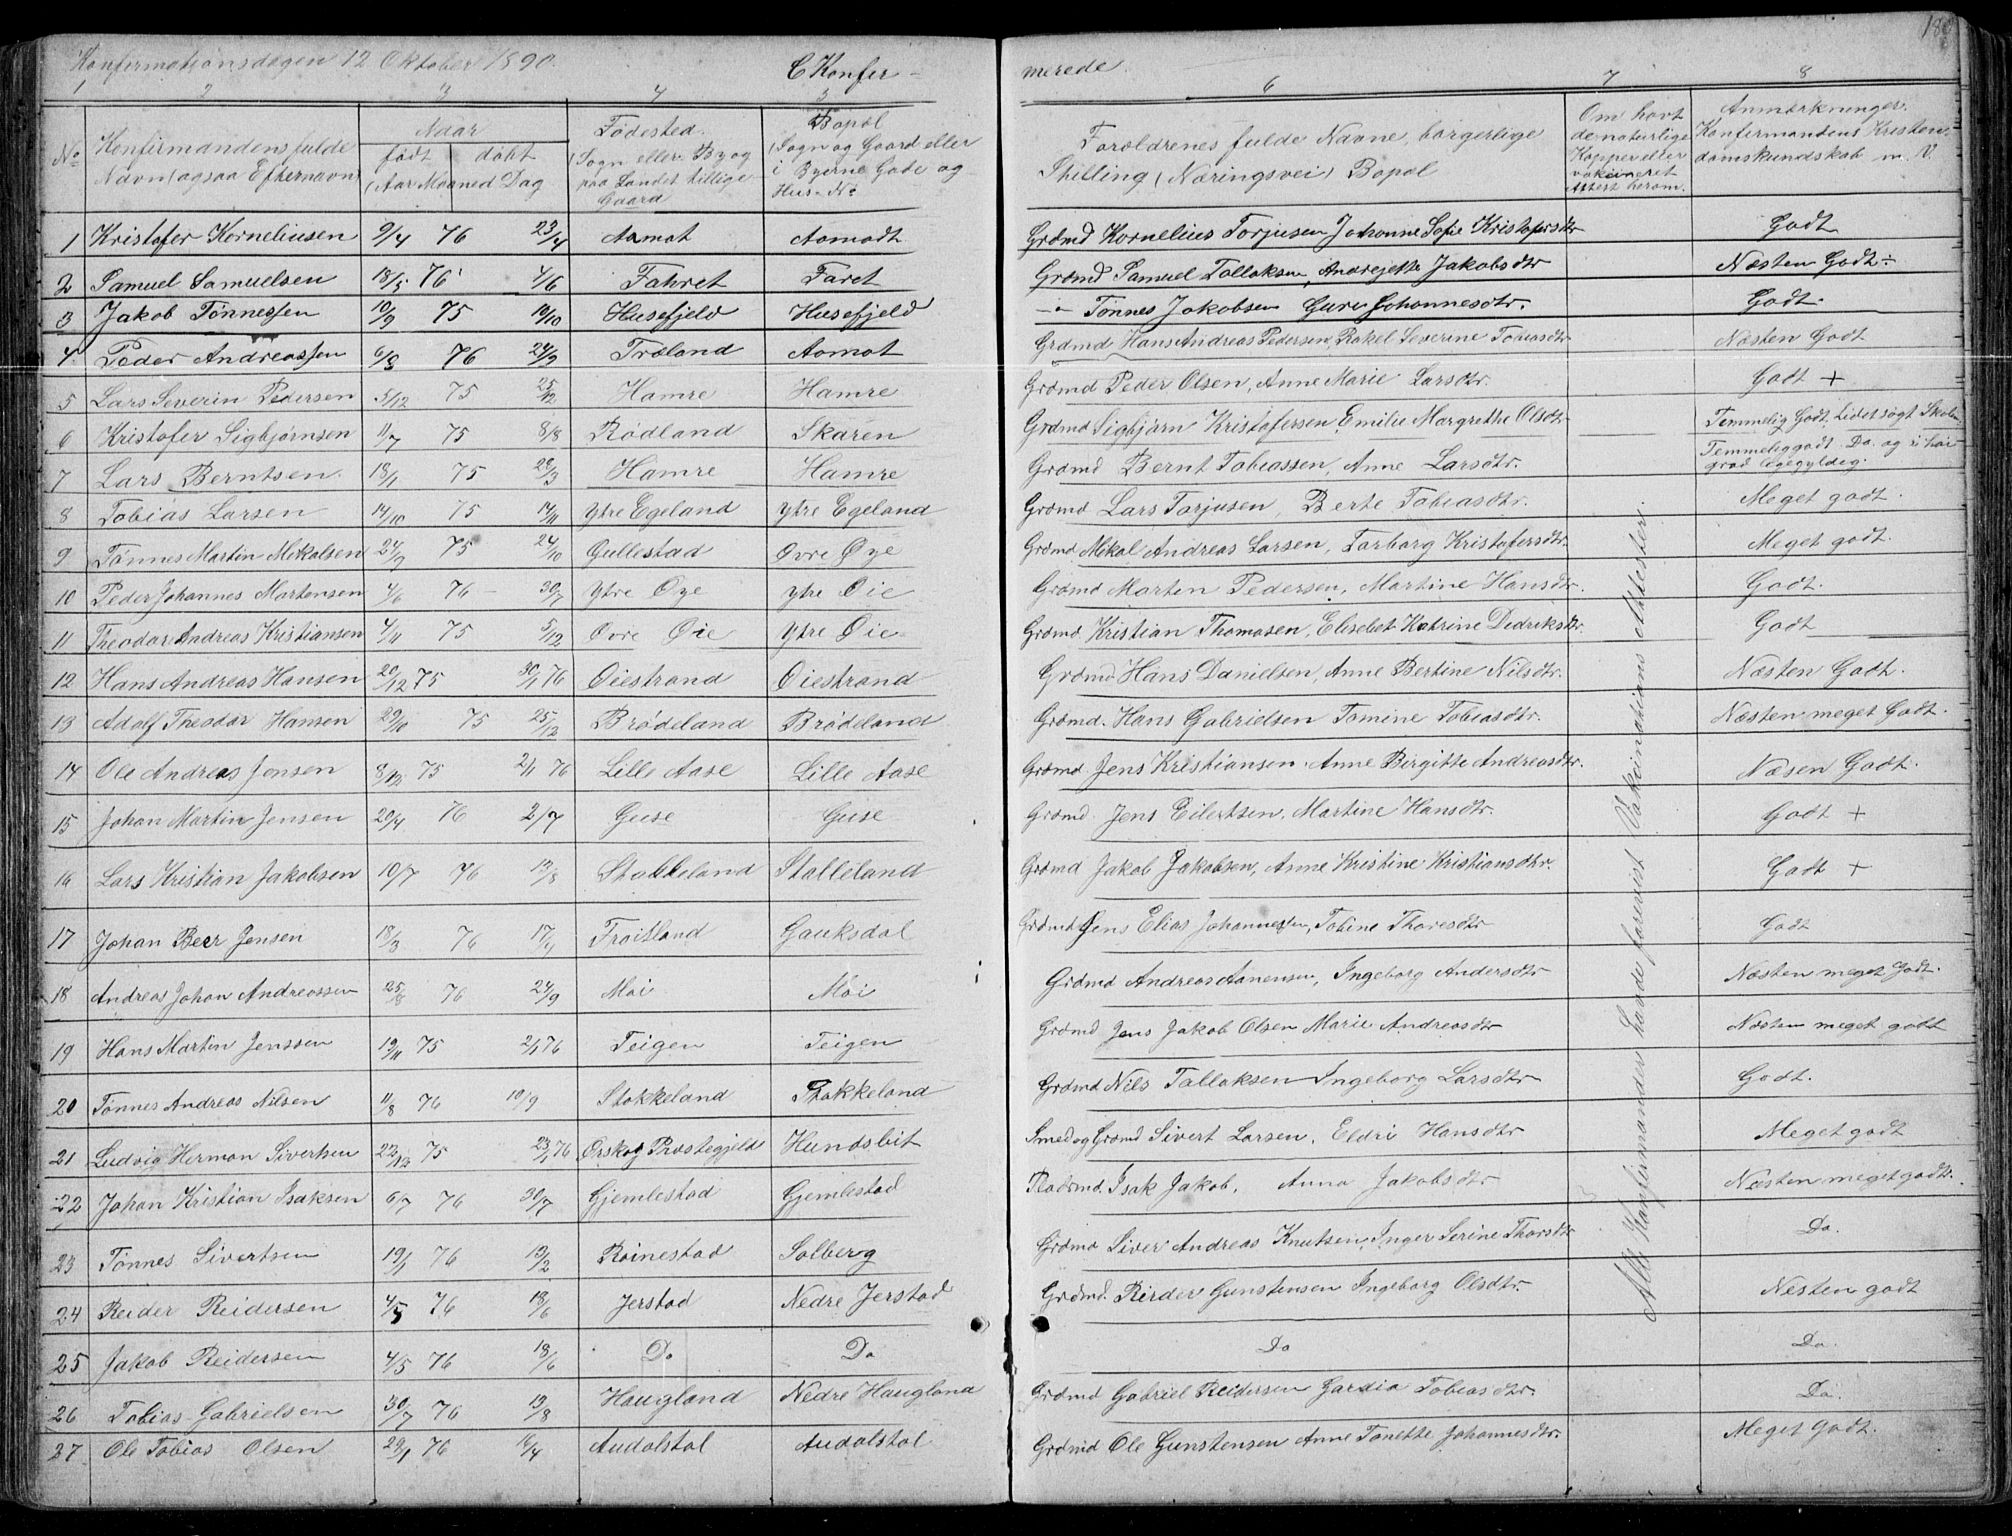 Konfirmationsdagen 12 Oktober 1890. C Konfir-
merede. 18
1 2 3 4 5 6 7 8
No Konfirmandens fulde Navn (ogsaa Efternavn)
Naar
født døbt
(Aar Maaned Dag
Fødested.
(Sogn eller By og
paa Landet tillige
Gaard
Bopæl
(Sogn og Gaard eller
i Byerne Gade og
Hus-No
Forældrenes fulde Navne, borgerlige
Stilling (Næringsvei) Bopæl
Om havt
de naturlige
Kopper eller
vakcineret
Attest herom.
Anmærkninger.
Konfirmandens Kristen
domskundskab m. V.
1 Kristofer Korneliusen 9/4 76 23/4 Aamot Aamodt Grdmd Kornelius Torjusen Johanne Sofie Kristofersdtr Godt
2 Samuel Samuelsen 18/5 76 4/6 Fahret Faret Grdmd Samuel Tollaksen, Andrejette Jakobsdtr Næsten Godt
3 Jakob Tønnessen 10/9 75 10/10 Husefjeld Husefjeld -"- Tønnes Jakobsen Guro Johannesdtr. Godt
4 Peder Andreassen 6/8 76 24/9 Træland Aamot Grdmd Hans Andreas Pedersen, Rakel Severine Tobiasdtr Næsten Godt
5 Lars Severin Pedersen 5/12 75 25/12 Hamre Hamre Grdmd Peder Olsen, Anne Marie Larsdtr. Godt +
6 Kristofer Sigbjørnsen 11/7 75 8/8 Rødland Skaren Grdmd Sigbjørn Kristofersen Emilie Margrethe Olsdtr Temmelig Godt. Lidet søgt Skolen
7 Lars Berntsen 18/1 75 28/3 Hamre Hamre Grdmd Bernt Tobiassen, Anne Larsdtr. Temmelig godt Do. og i høi grad ligegyldig.
8 Tobias Larsen 14/10 75 14/11 Ytre Egeland Ytre Egeland Grdmd Lars Torjusen, Berte Tobiasdtr. Meget godt.
9 Tønnes Martin Mikalsen 24/9 75 24/10 Gullestad Øvre Øye Grdmd Mikal Andreas Larsen, Torborg Kristofersdtr. Meget godt.
10 Peder Johannes Mortensen 4/6 76 30/7 Ytre Øye Ytre Øie Grdmd Morten Pedersen, Martine Hansdtr. Godt.
11 Theodor Andreas Kristiansen 4/11 75 5/12 Øvre Øie Ytre Øie Grdmd Kristian Thomasen, Elisebet Katrine Dedriksdtr. Godt
12 Hans Andreas Hansen 20/12 75 30/1 76 Øiestrand Øiestrand Grdmd Hans Danielsen, Anne Bertine Nilsdtr. Næsten Godt.
13 Adolf Theodor Hansen 29/10 75 25/12 Brødeland Brødeland Grdmd. Hans Gabrielsen Tomine Tobiasdtr. Næsten meget Godt.
14 Ole Andreas Jensen 8/12 75 2/1 76 Lille Aase Lille Aase Grdmd Jens Kristiansen, Anne Birgitte Andreasdtr. Næsen Godt.
15 Johan Martin Jensen 20/4 76 2/7 Guse Guse Grdmd. Jens Eilertsen, Martine Hansdtr. Godt +
16 Lars Kristian Jakobsen 10/7 76 13/8 Stokkeland Stolleland Grdmd Jakob Jakobsen, Anne Kristine Kristiansdtr. Godt +
17 Johan Beer Jensen 18/3 76 17/4 Frøitland Gauksdal Grdmd Jens Elias Johannessen, Tobine Thoresdtr Godt
18 Andreas Johan Andreassen 25/8 76 24/9 Moi Moi Grdmd Andreas Aanensen, Ingeborg Andersdtr Næsten meget Godt.
19 Hans Martin Jenssen 19/11 75 2/1 76 Teigen Teigen Grdmd Jens Jakob Olsen Marie Andreasdtr Næsten meget godt
20 Tønnes Andreas Nilsen 11/8 76 10/9 Stokkeland Stokkeland Grdmd Nils Tallaksen Ingeborg Larsdtr Godt.
21 Ludvig Herman Sivertsen 22/12 75 23/1 76 Ørskog Præstegjeld Hundsbit Smed og Grdmd Sivert Larsen, Eldri Hansdtr Meget godt
22 Johan Kristian Isaksen 6/7 76 30/7 Gjemlestad Gjemlestad Isak Jakob. Anna Jakobsdtr Næsten meget godt.
23 Tønnes Sivertsen 19/1 76 13/2 Røinestad Solberg Grdmd Siver Andreas Knutsen, Inger Serine Thorsdtr Do.
24 Reider Reidersen 4/5 76 18/6 Jerstad Nedre Jerstad Grdmd. Reider Gunstensen Ingeborg Olsdtr. Næsten godt
25 Jakob Reidersen 4/5 76 18/6 Do Do Do Do.
26 Tobias Gabrielsen 30/7 76 13/8 Haugland Nedre Haugland Grdmd Gabriel Reidersen Gardia Tobiasdtr. Do.
27 Ole Tobias Olsen 29/1 76 16/4 Audalstol Audalstol Grdmd Ole Gunstensen Anne Tonette Johannesdtr. Meget Godt.
Alle Konfirmander havde forevist Vakcinations Attester.